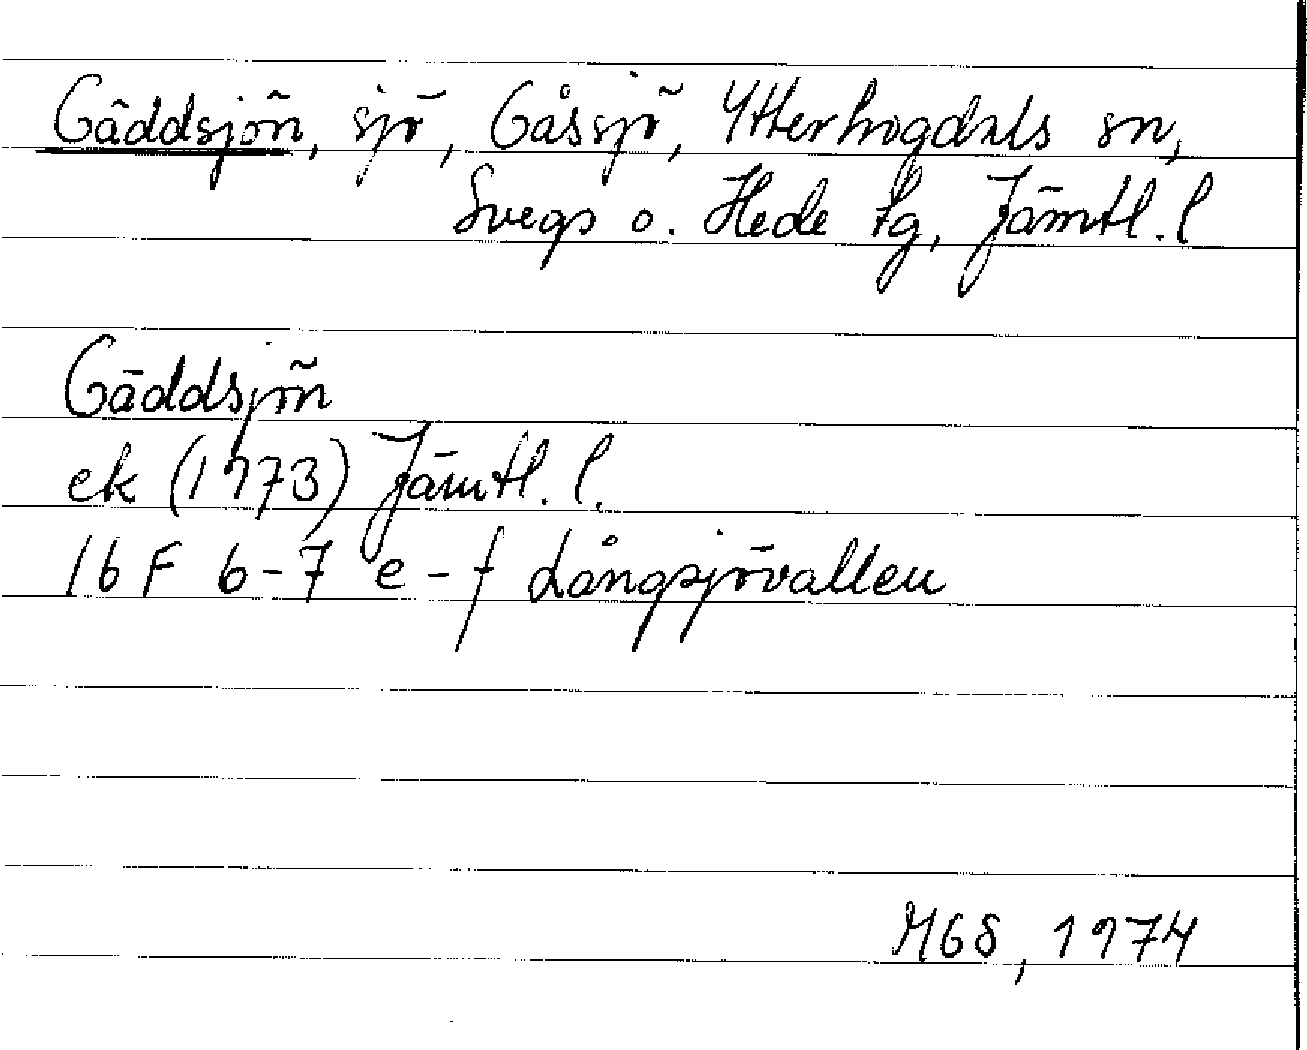 Gäddsjön, sjö, Gåssjö, Ytterhogdals sn,
Svegs o. Hede tg, Jämtl. l
Gäddsjön
ek (1973) Jämtl. l.
16 F 6-7 e-f Långsjövallen
MGS, 1974